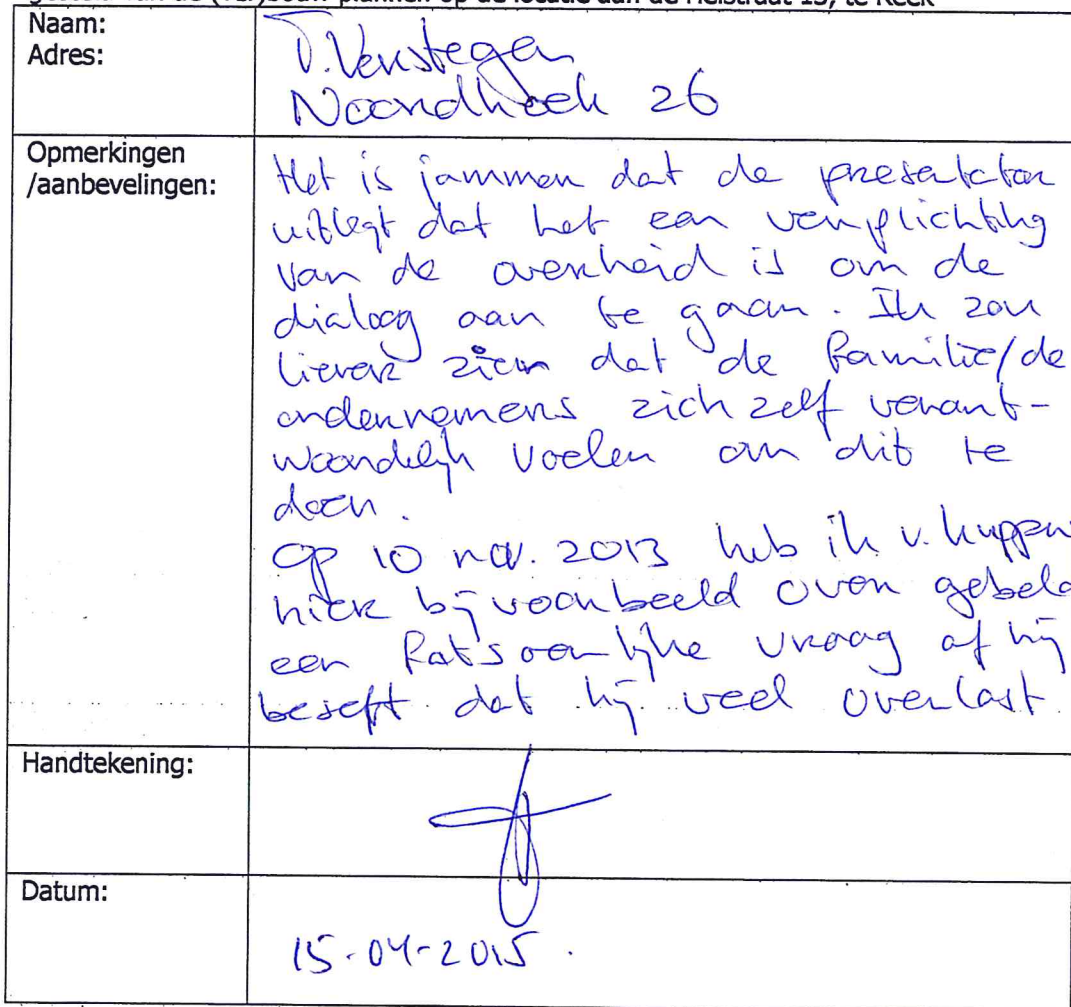 van de (ver)bouw plannen op de locatie aan de Helstraat 13, te Reek
Naam:
Adres:
Verstegen
Noordhoek 26
Opmerkingen
/aanbevelingen:
Het is jammer dat de presentator
uitlegt dat het een verplichting
van de overheid is om de
dialoog aan te gaan. Ik zou
liever zien dat de familie/de
ondernemers zich zelf verant-
woordelijk voelen om dit te
doen.
Op 10 nov. 2013 heb ik v. Kuppen
hier bijvoorbeeld over gebeld
een fatsoenlijke vraag of hij
beseft dat hij veel overlast
Handtekening:
Datum:
15-04-2015.